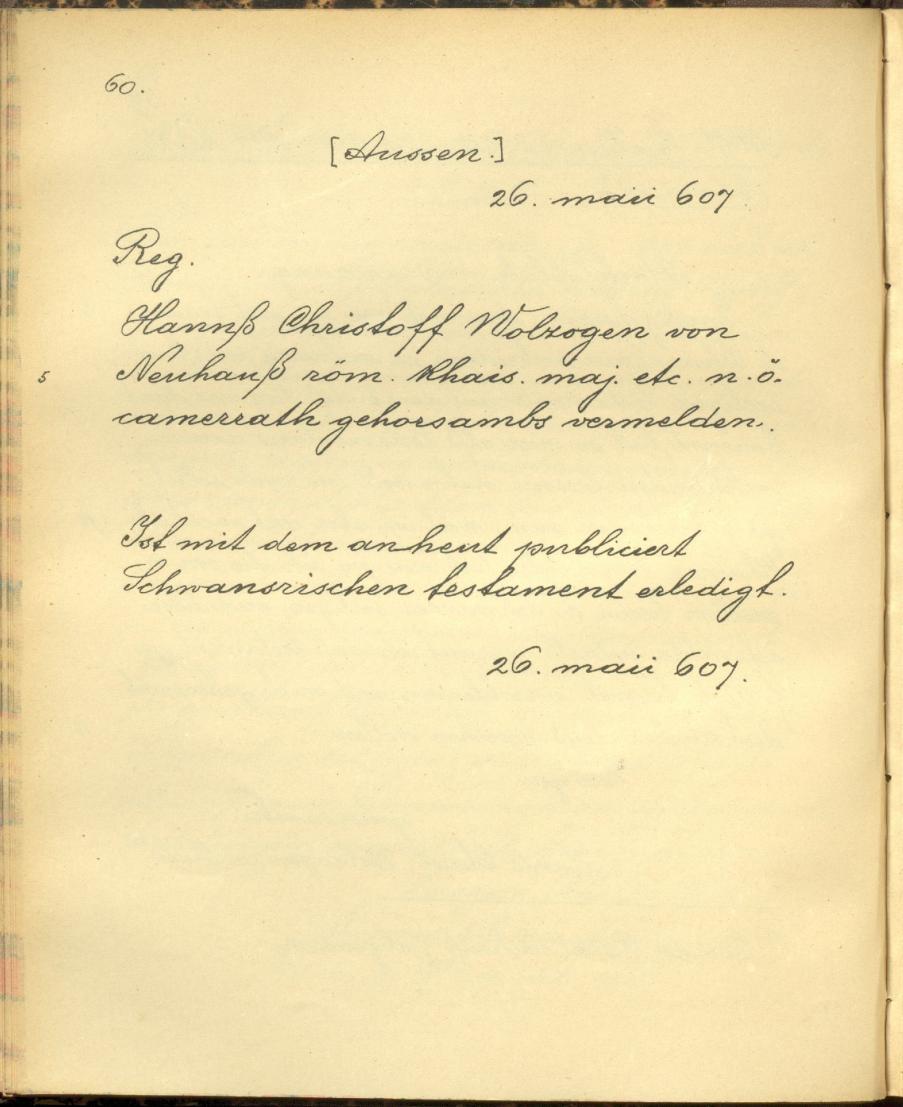 60.
[Aussen.]
26. maii 607.
Reg.
Hannß Christoff Wolzogen von
5 Neuhauß röm. khais. maj. etc. n. ö.
camerrath gehorsambs vermelden.
Ist mit dem anheut publiciert
Schwansrischen testament erledigt.
26. maii 607.